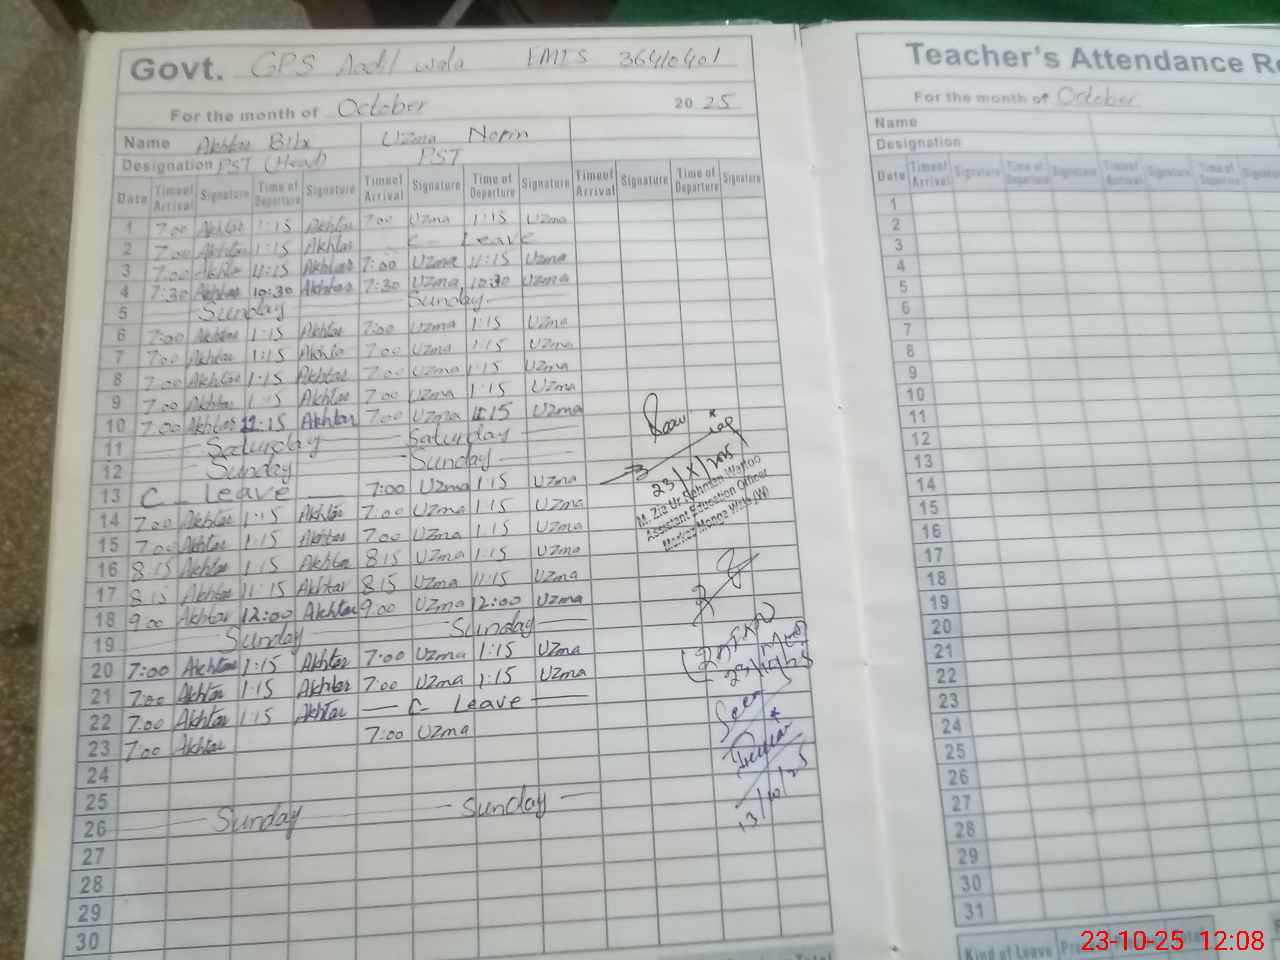 Govt. GPS Aadl wala EMIS 36410401
For the month of October 20 25
Name Akhtar Bibi Uzma Norin
Designation PST (Head) PST
Date Time of Arrival Signature Time of Departure Signature Time of Arrival Signature Time of Departure Signature Time of Arrival Signature Time of Departure Signature
1 7:00 Akhtar 1:15 Akhtar 7:00 Uzma 1:15 Uzma
2 7:00 Akhtar 1:15 Akhtar C- Leave
3 7:00 Akhtar 11:15 Akhtar 7:00 Uzma 11:15 Uzma
4 7:30 Akhtar 10:30 Akhtar 7:30 Uzma 10:30 Uzma
5 Sunday Sunday
6 7:00 Akhtar 1:15 Akhtar 7:00 Uzma 1:15 Uzma
7 7:00 Akhtar 1:15 Akhta 7:00 Uzma 1:15 Uzma
8 7:00 Akhtar 1:15 Akhtar 7:00 Uzma 1:15 Uzma
9 7:00 Akhtar 1:15 Akhtar 7:00 Uzma 1:15 Uzma
10 7:00 Akhtar 11:15 Akhtar 7:00 Uzma 11:15 Uzma
11 Saturday Saturday
12 Sunday Sunday
13 C- Leave 7:00 Uzma 1:15 Uzma
14 7:00 Akhtar 1:15 Akhtar 7:00 Uzma 1:15 Uzma
15 7:00 Akhtar 1:15 Akhtar 7:00 Uzma 1:15 Uzma
16 8:15 Akhtar 1:15 Akhtar 8:15 Uzma 1:15 Uzma
17 8:15 Akhtar 11:15 Akhtar 8:15 Uzma 11:15 Uzma
18 9:00 Akhtar 12:00 Akhtar 9:00 Uzma 12:00 Uzma
19 Sunday Sunday
20 7:00 Akhtar 1:15 Akhtar 7:00 Uzma 1:15 Uzma
21 7:00 Akhtar 1:15 Akhtar 7:00 Uzma 1:15 Uzma
22 7:00 Akhtar 1:15 Akhtar C- Leave
23 7:00 Akhtar 7:00 Uzma
24
25
26 Sunday Sunday
27
28
29
30
23/X/2025
M. Zia Ur Rehman Wattoo
Assistant Education Officer
Markaz Monga Wala (W)
23/10/25
Seen
13/10/25
Teacher's Attendance Re
For the month of October
Name
Designation
Date Time of Arrival Signature Time of Departure Signature Time of Arrival Signature Time of Departure Signature
1
2
3
4
5
6
7
8
9
10
11
12
13
14
15
16
17
18
19
20
21
22
23
24
25
26
27
28
29
30
31
Kind of Leave
23-10-25 12:08